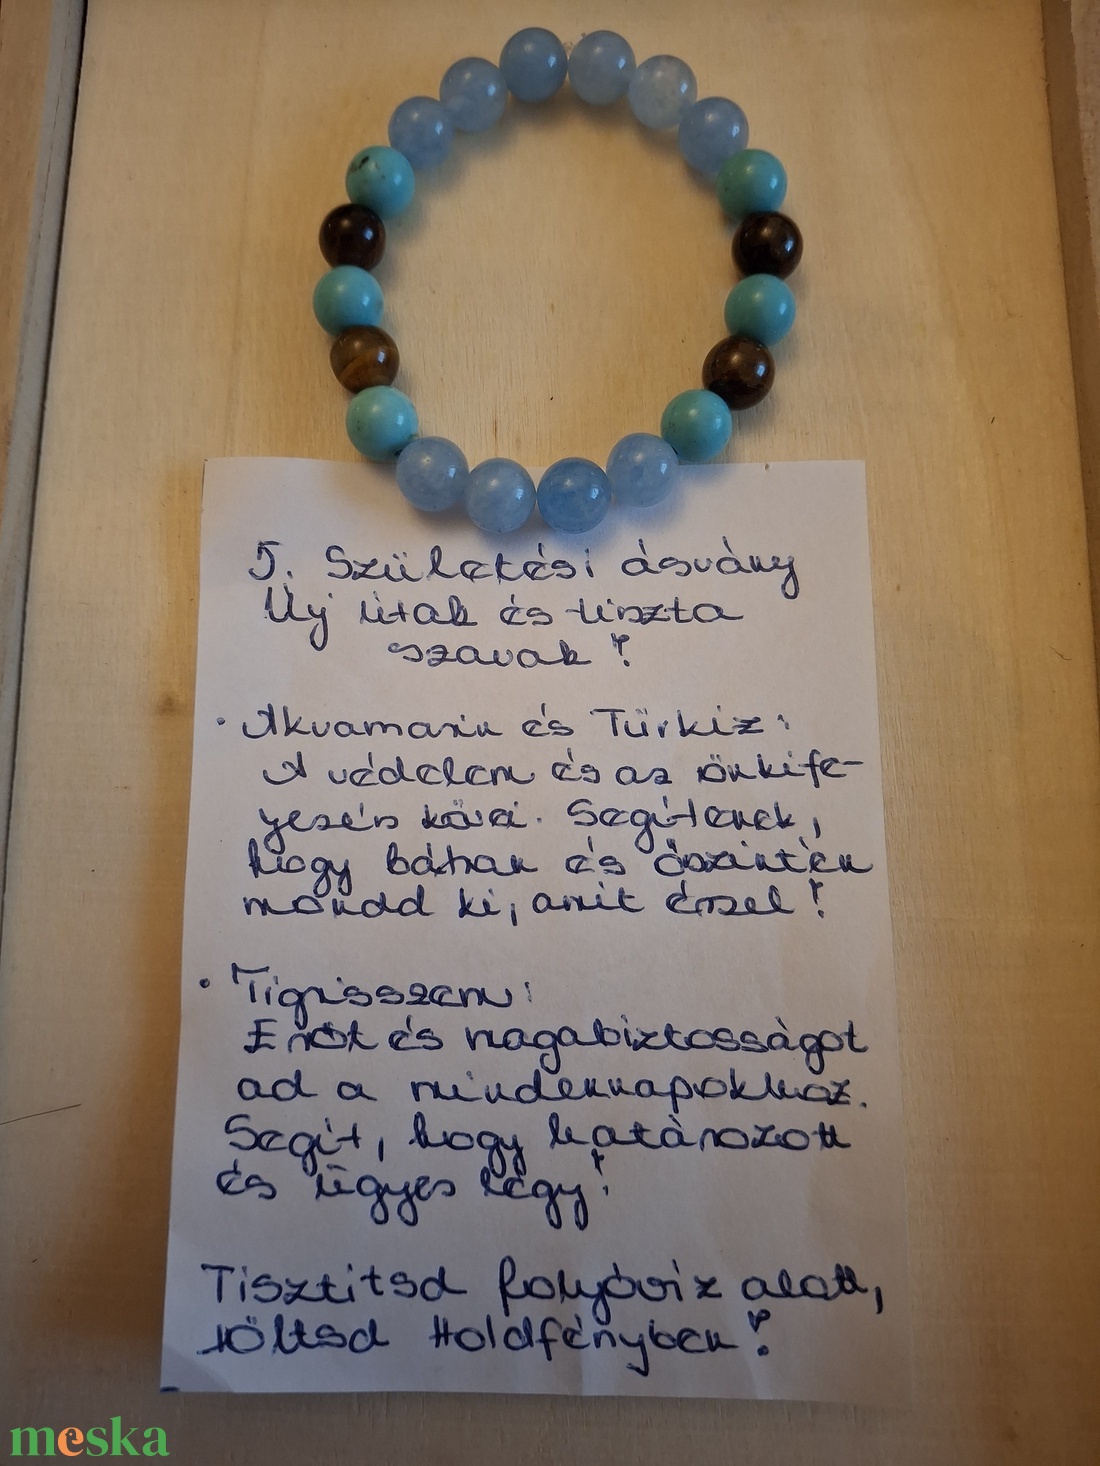 5. Születési ásvány
Új utak és tiszta
szavak!
• Akvamarin és Türkiz:
A védelem és az önkife-
jezés kövei. Segítenek,
hogy bátran és őszintén
mondd ki, amit érzel!
• Tigrisszem:
Erőt és magabiztosságot
ad a mindennapokhoz.
Segít, hogy határozott
és ügyes légy!
Tisztítsd folyóvíz alatt,
töltsd Holdfényben!
meska